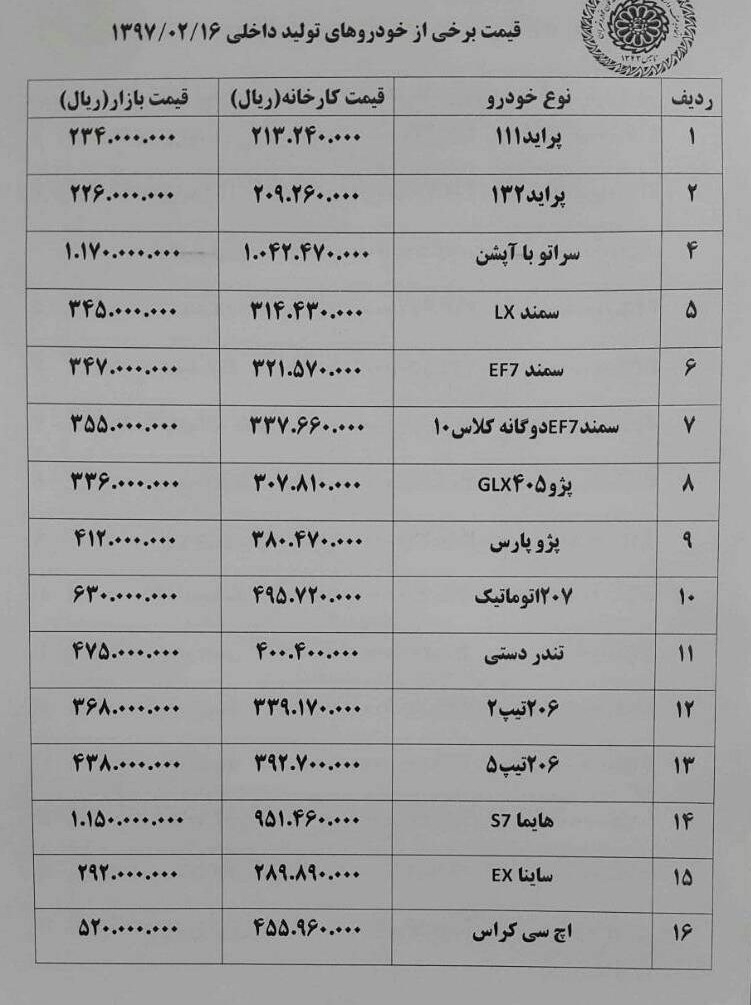 قیمت برخی از خودروهای تولید داخلی ۱۳۹۷/۰۲/۱۶
تاسیس ۱۳۴۳
ردیف نوع خودرو قیمت کارخانه(ریال) قیمت بازار(ریال)
۱ پراید۱۱۱ ۲۱۳.۲۴۰.۰۰۰ ۲۳۴.۰۰۰.۰۰۰
۲ پراید۱۳۲ ۲۰۹.۲۶۰.۰۰۰ ۲۲۶.۰۰۰.۰۰۰
۴ سراتو با آپشن ۱.۰۴۲.۴۷۰.۰۰۰ ۱.۱۷۰.۰۰۰.۰۰۰
۵ سمند LX ۳۱۴.۴۳۰.۰۰۰ ۳۴۵.۰۰۰.۰۰۰
۶ سمند EF7 ۳۲۱.۵۷۰.۰۰۰ ۳۴۷.۰۰۰.۰۰۰
۷ سمندEF7دوگانه کلاس۱۰ ۳۳۷.۶۶۰.۰۰۰ ۳۵۵.۰۰۰.۰۰۰
۸ پژو۴۰۵GLX ۳۰۷.۸۱۰.۰۰۰ ۳۳۶.۰۰۰.۰۰۰
۹ پژو پارس ۳۸۰.۴۷۰.۰۰۰ ۴۱۲.۰۰۰.۰۰۰
۱۰ ۲۰۷اتوماتیک ۴۹۵.۷۲۰.۰۰۰ ۶۳۰.۰۰۰.۰۰۰
۱۱ تندر دستی ۴۰۰.۴۰۰.۰۰۰ ۴۷۵.۰۰۰.۰۰۰
۱۲ ۲۰۶تیپ۲ ۳۳۹.۱۷۰.۰۰۰ ۳۶۸.۰۰۰.۰۰۰
۱۳ ۲۰۶تیپ۵ ۳۹۲.۷۰۰.۰۰۰ ۴۳۸.۰۰۰.۰۰۰
۱۴ هایما S7 ۹۵۱.۴۶۰.۰۰۰ ۱.۱۵۰.۰۰۰.۰۰۰
۱۵ ساینا EX ۲۸۹.۸۹۰.۰۰۰ ۲۹۲.۰۰۰.۰۰۰
۱۶ اچ سی کراس ۴۵۵.۹۶۰.۰۰۰ ۵۲۰.۰۰۰.۰۰۰